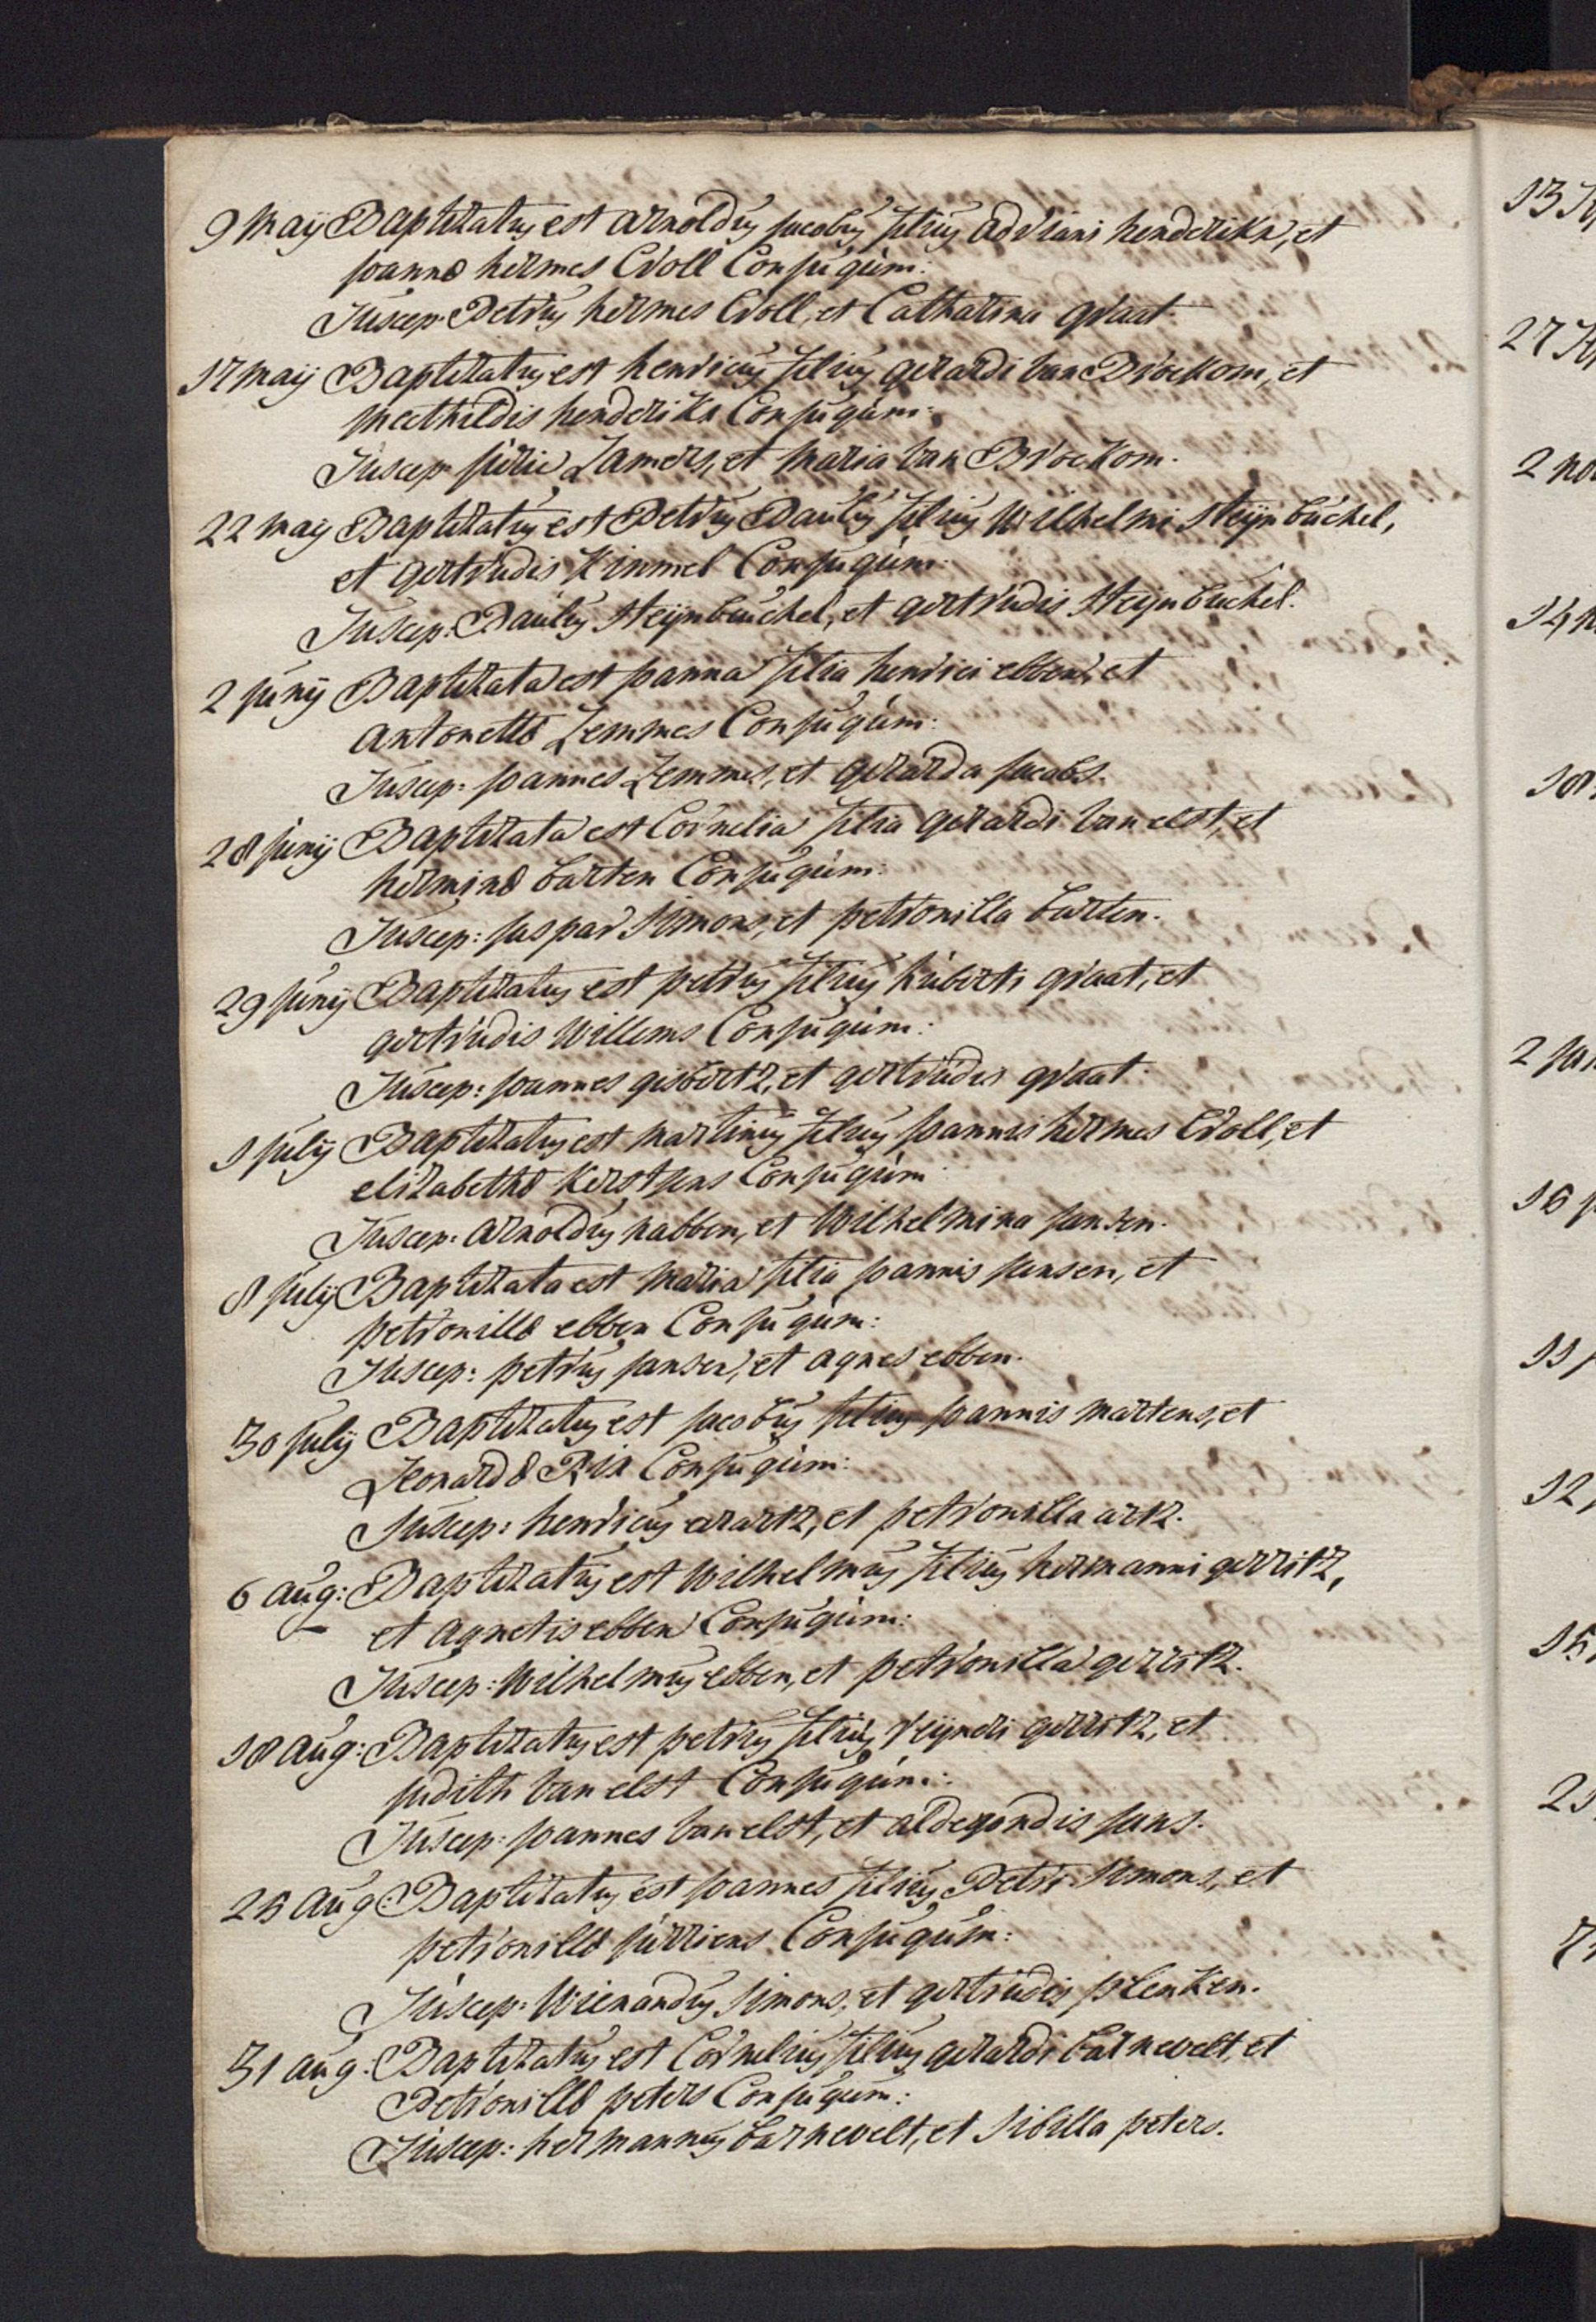 9 Maij Baptizatus est arnoldus jacobus filius adriani henderikx, et
joannæ hermes Croll Conjugum:
Suscep: Petrus hermes Croll, et Catharina graat.
17 maij Baptizatus est henricus filius gerardi van Broekom, et
mechtildis henderikx Conjugum:
Suscep: jurie Lamers, et maria van Broekom.
22 maij Baptizatus est Petrus Paulus filius Wilhelmi Steijnbuchel,
et gertrudis Kimmel Conjugum:
Suscep: Paulus Steijnbuchel, et gertrudis Steijnbuchel.
2 junij Baptizata est joanna filia henrici ebben, et
antonettæ Lemmes Conjugum:
Suscep: joannes Lemmes, et gerarda jacobs.
28 junij Baptizata est Cornelia filia gerardi van elst, et
herminæ barten Conjugum:
Suscep: jaspar Simons, et petronilla barten.
29 junij Baptizatus est petrus filius huberti graat, et
gertrudis Willems Conjugum:
Suscep: joannes gisbertz, et gertrudis graat.
1 julij Baptizatus est martinus filius joannis hermes Croll, et
elizabethæ Kerstjens Conjugum
Suscep: arnoldus nabben, et Wilhelmina jansen.
8 julij Baptizata est maria filia joannis jansen, et
petronillæ ebben Conjugum:
Suscep: petrus jansen, et agnes ebben.
30 julij Baptizatus est jacobus filius joannis martens, et
Leonardæ Rix Conjugum:
Suscep: henricus erartz, et petronilla artz.
6 aug: Baptizatus est Wilhelmus filius hermanni gerritz,
et agnetis ebben Conjugum:
Suscep: Wilhelmus ebben, et petronilla gerritz.
18 aug: Baptizatus est petrus filius reijneri gerritz, et
judith van elst Conjugum:
Suscep: joannes van elst, et aldegondis jans.
25 aug: Baptizatus est joannes filius Petri Simons, et
petronillæ jurriens Conjugum:
Suscep: Wienandus Simons, et gertrudis plenken.
31 aug: Baptizatus est Cornelius filius gerardi barnevelt, et
Petronillæ peters Conjugum:
Suscep: hermannus barnevelt, et Sibilla peters.
13
27
2 no
14 n
18
2 jan
16
11
12
15
21